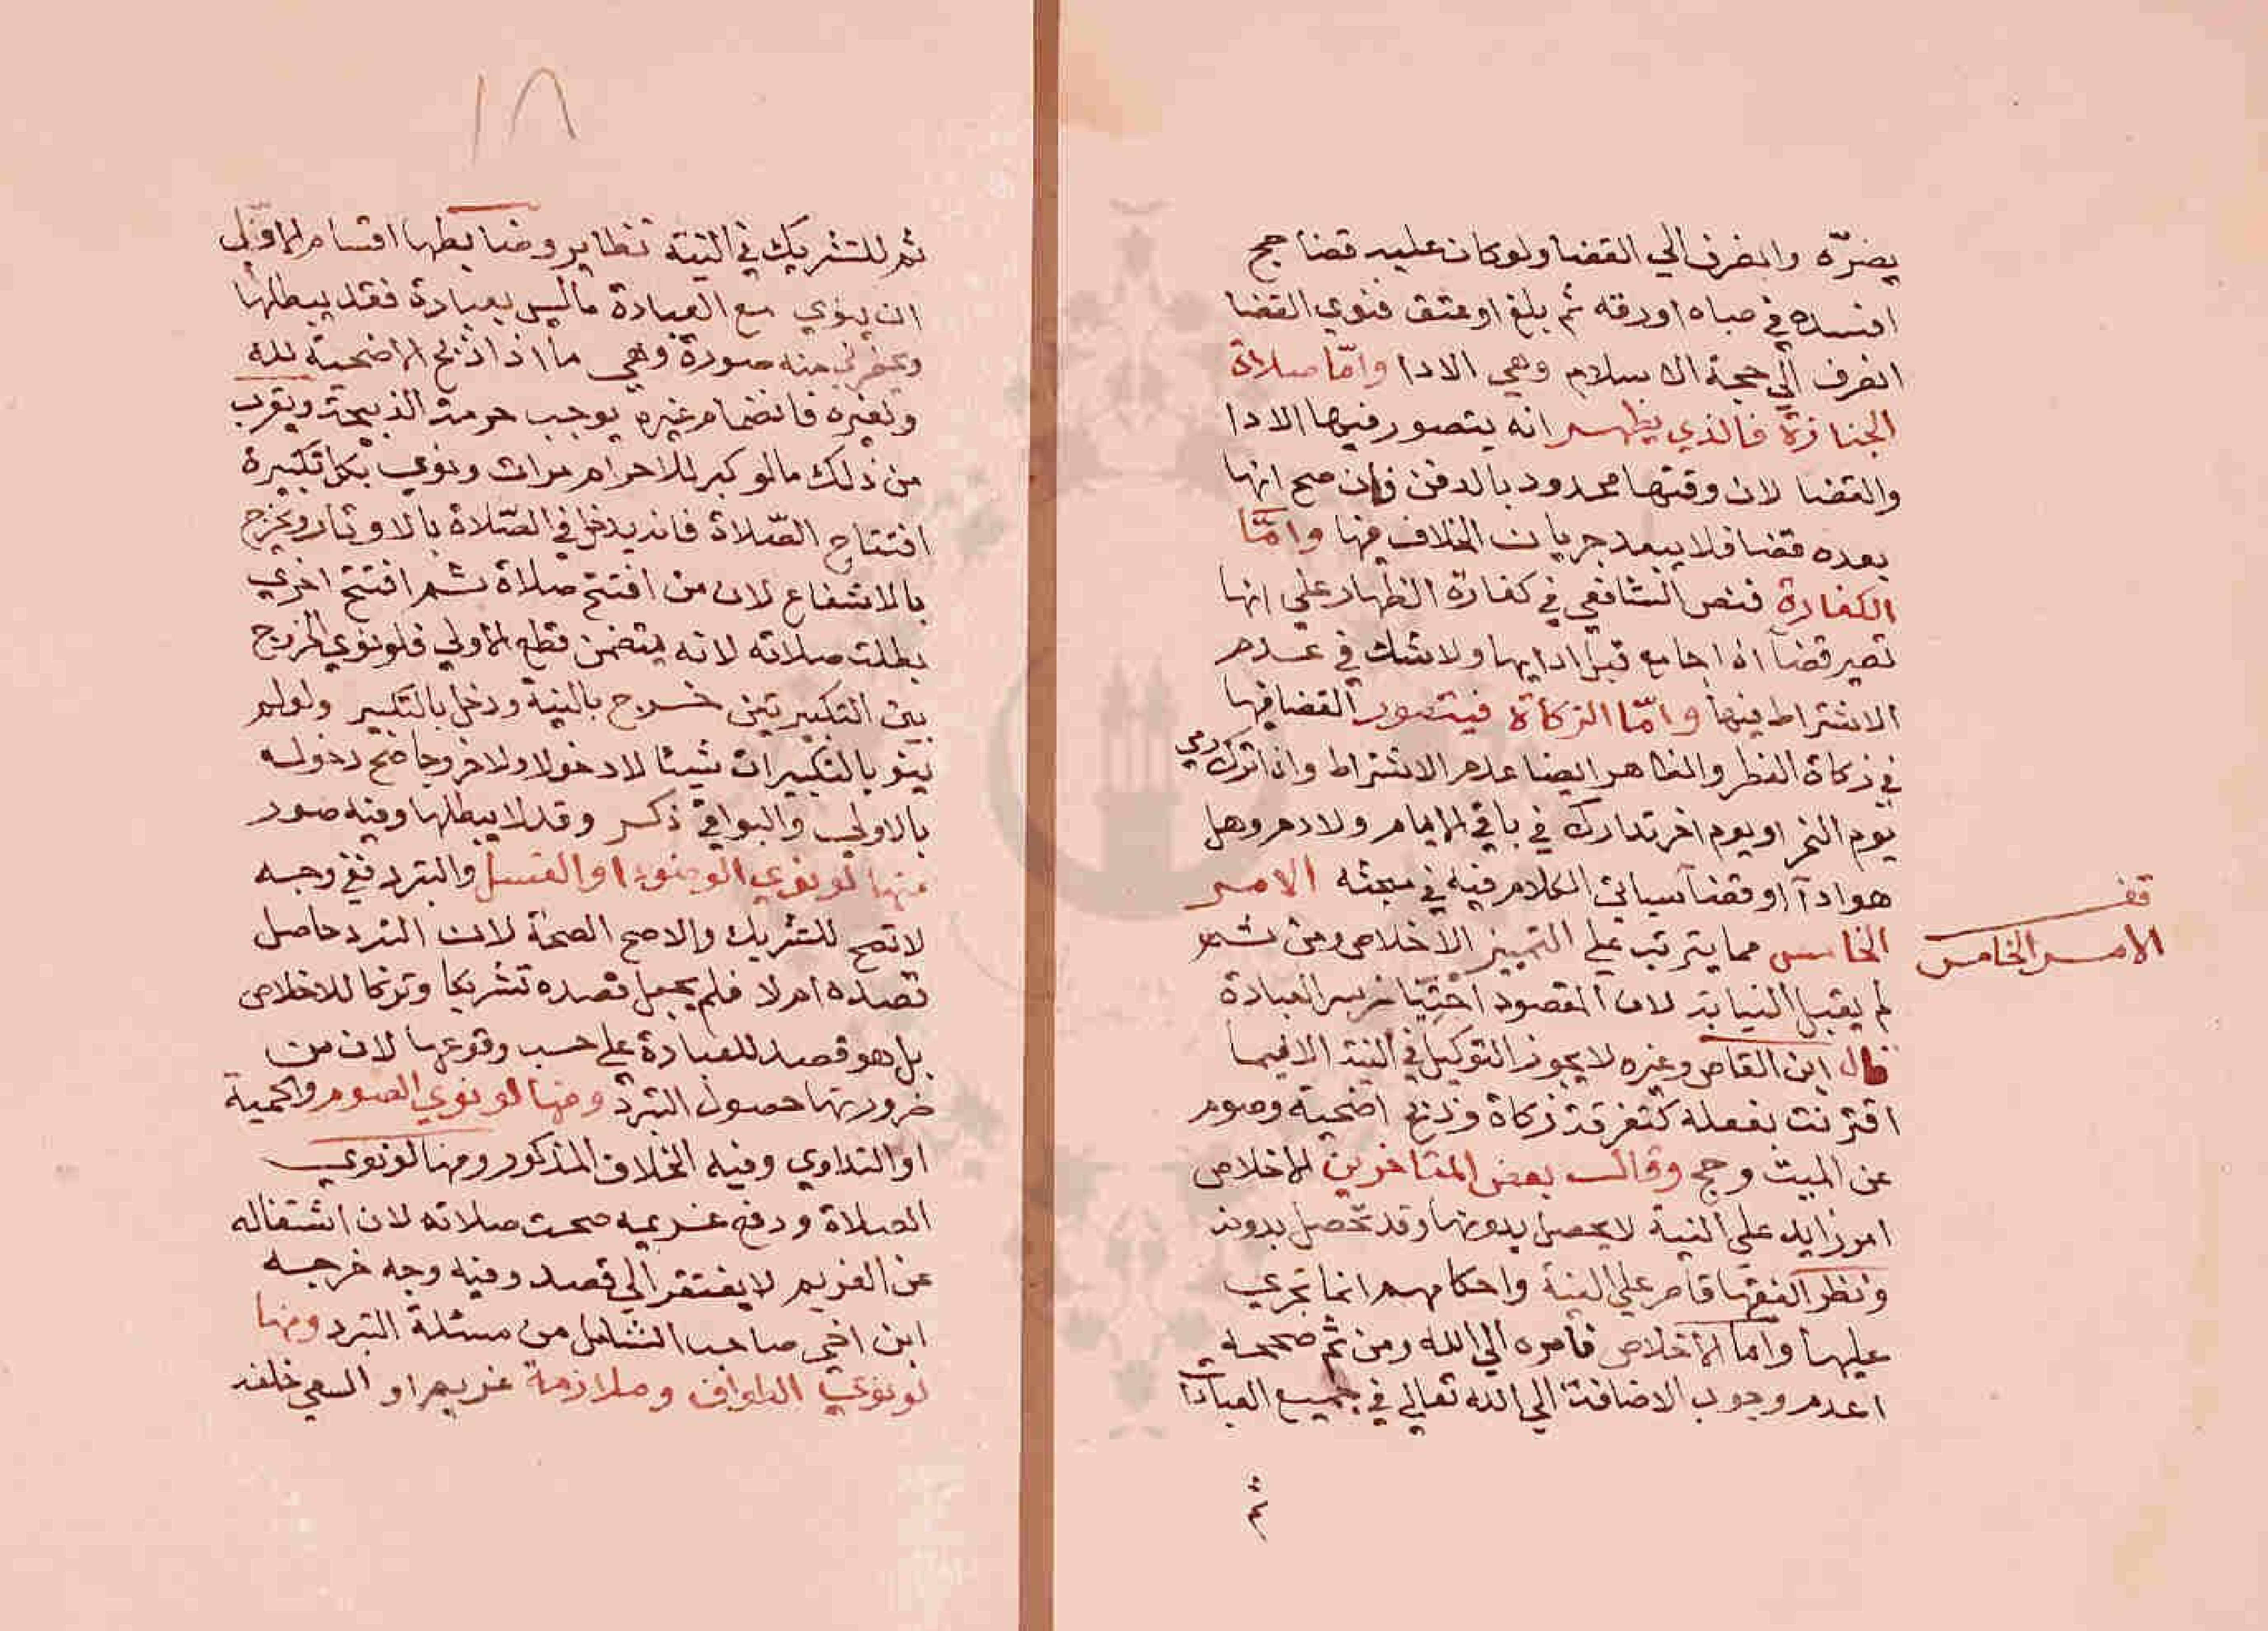 يضرّه وانصرف الي القضا ولو كان عليه قضا حج
افسده في صباه اورقه ثم بلغ او عتق فنوي القضا
انصرف الي حجة الاسلام وهي الادا وامّا صلاة
الجنازة فالذي يظهر انه يتصور فيها الادا
والقضا لان وقتها محدود بالدفن فان صح انها
بعده قضا فلا يبعد جريان الخلاف فيها وامّا
الكفارة فنص الشافعي في كفارة الظهار علي انها
تصير قضآ اذا جامع قبل ادايها ولا شك في عدم
الاشتراط فيها وامّا الزكاة فيتصور القضا فيها
في زكاة الفطر والظاهر ايضا عدم الاشتراط واذا ترك رمي
يوم النحر او يوم اخر تدارك في باقي الايام ولا دم وهل
هو ادآ او قضآ سياتي الكلام فيه في مبحثه الامر
قف
الامر الخامس
الخامس مما يترتب علي التمييز الاخلاص ومن ثم
لم يقبل النيابة لان المقصود اختبار سر العبادة
قال ابن القاص وغيره لا يجوز التوكيل في النية الا فيما
اقترنت بفعله كتفرقة زكاة وذبح اضحية وصوم
عن الميت وحج وقال بعض المتاخرين الاخلاص
امر زايد علي النية لا يحصل بدونها وقد تحصل بدونه
ونظر الفقها قاصر علي النية واحكامهم انما تجري
عليها واما الاخلاص فامره الي الله ومن ثم صححه
اعدم وجوب الاضافة الي الله تعالي في جميع العبادات
ثم
١٨
ثم للتشريك في النية نظاير وضابطها اقسام الاول
ان ينوي مع العبادة ما ليس بعبادة فقد يبطلها
ويحضرني منه صورة وهي ما اذا ذبح الاضحية لله
ولغيره فانضمام غيره يوجب حرمة الذبيحة ويقرب
من ذلك ما لو كبر للاحرام مرات ونوي بكل تكبيرة
افتتاح الصّلاة فانه يدخل في الصّلاة بالاوتار ويخرج
بالاشفاع لان من افتتح صلاة ثم افتتح اخري
بطلت صلاته لانه يتضمن قطع الاولي فلو نوي الخروج
بين التكبيرتين خرج بالنية ودخل بالتكبير ولو لم
ينو بالتكبيرات شيئا لا دخولا ولا خروجا صح دخوله
بالاولي والبواقي ذكر وقد لا يبطلها وفيه صور
منها لو نوي الوضوء او الغسل والتبرد ففي وجه
لا تصح للتشريك والاصح الصحة لان التبرد حاصل
قصده ام لا فلم يجعل قصده تشريكا وتركا للاخلاص
بل هو قصد للعبادة علي حسب وقوعها لان من
ضرورتها حصول التبرد ومنها لو نوي الصوم والحمية
او التداوي وفيه الخلاف المذكور ومنها لو نوي
الصلاة ودفع غريمه صحت صلاته لان اشتغاله
عن الغريم لا يفتقر الي قصد وفيه وجه خرجه
ابن اخي صاحب الشامل من مسئلة التبرد ومنها
لو نوي الطواف وملازمة غريم او السعي خلفه